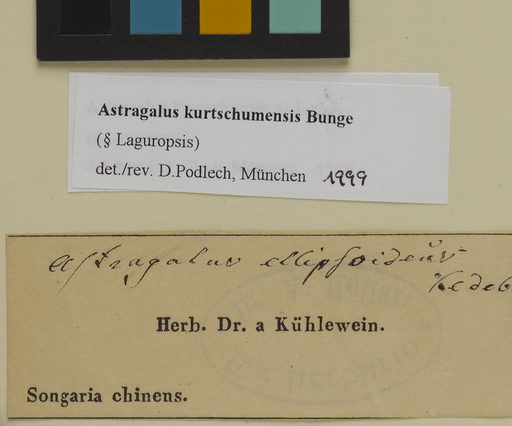 Astragalus kurtschumensis Bunge
(§ Laguropsis)
det./rev. D.Podlech, München 1999
Astragalus ellipsoideus
Ledeb
Herb. Dr. a Kühlewein.
Songaria chinens.